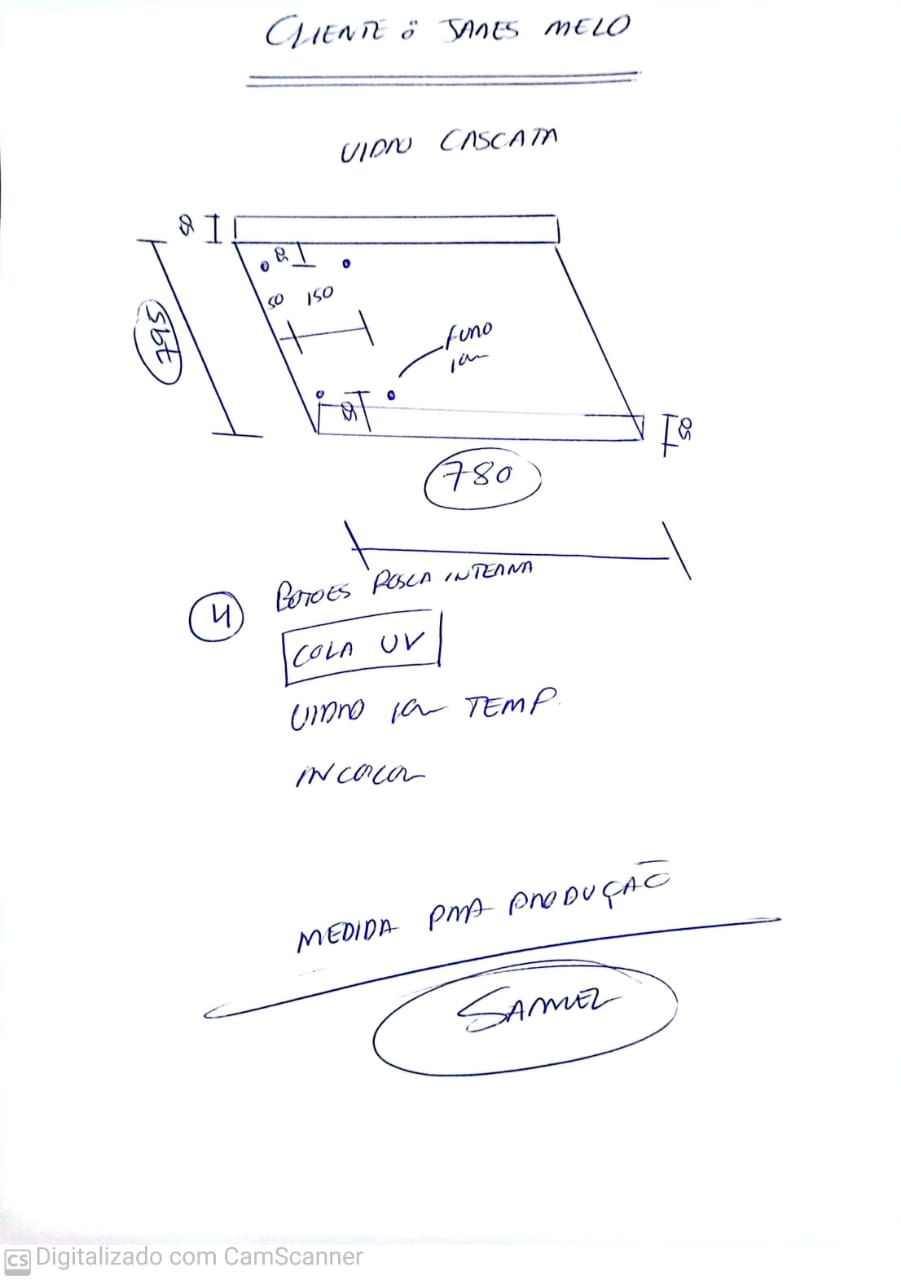 CLIENTE: JAMES MELO
VIDRO CASCATA
50 150
FURO
1cm
765
780
4 BOTOES ROSCA INTERNA
COLA UV
VIDRO 1cm TEMP.
INCOLOR
MEDIDA PARA PRODUÇÃO
SAMUEL
CS Digitalizado com CamScanner